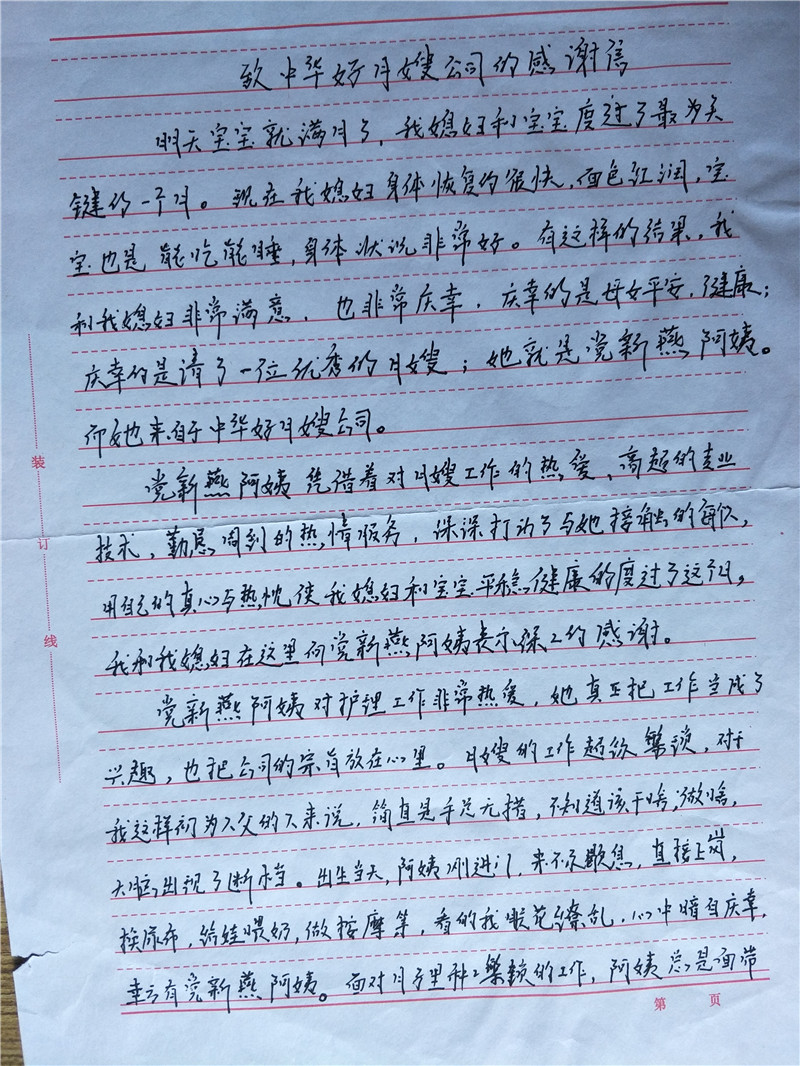 致中华好月嫂公司的感谢信
明天宝宝就满月了，我媳妇和宝宝度过了最为关
键的一个月。现在我媳妇身体恢复的很快，面色红润，宝
宝也是能吃能睡，身体状况非常好。有这样的结果，我
和我媳妇非常满意，也非常庆幸，庆幸的是母女平安，健康；
庆幸的是请了一位优秀的月嫂；她就是党新燕阿姨。
而她来自于中华好月嫂公司。
党新燕阿姨凭借着对月嫂工作的热爱、高超的专业
技术，勤恳周到的热情服务，深深打动了与她接触的每个人，
用自己的真心与热忱使我媳妇和宝宝平稳健康的度过了这个月，
我和我媳妇在这里向党新燕阿姨表示深深的感谢。
党新燕阿姨对护理工作非常热爱，她真正把工作当成了
兴趣，也把公司的宗旨放在心里。月嫂的工作超级繁琐，对于
我这样初为人父的人来说，简直是手足无措，不知道该干啥，做啥，
大脑出现了断档。出生当天，阿姨刚进门，来不及歇息，直接上岗，
换尿布，给娃喂奶，做按摩等，看的我眼花缭乱，心中暗自庆幸，
幸亏有党新燕阿姨。面对月子里种种繁琐的工作，阿姨总是面带
装
订
线
第 页